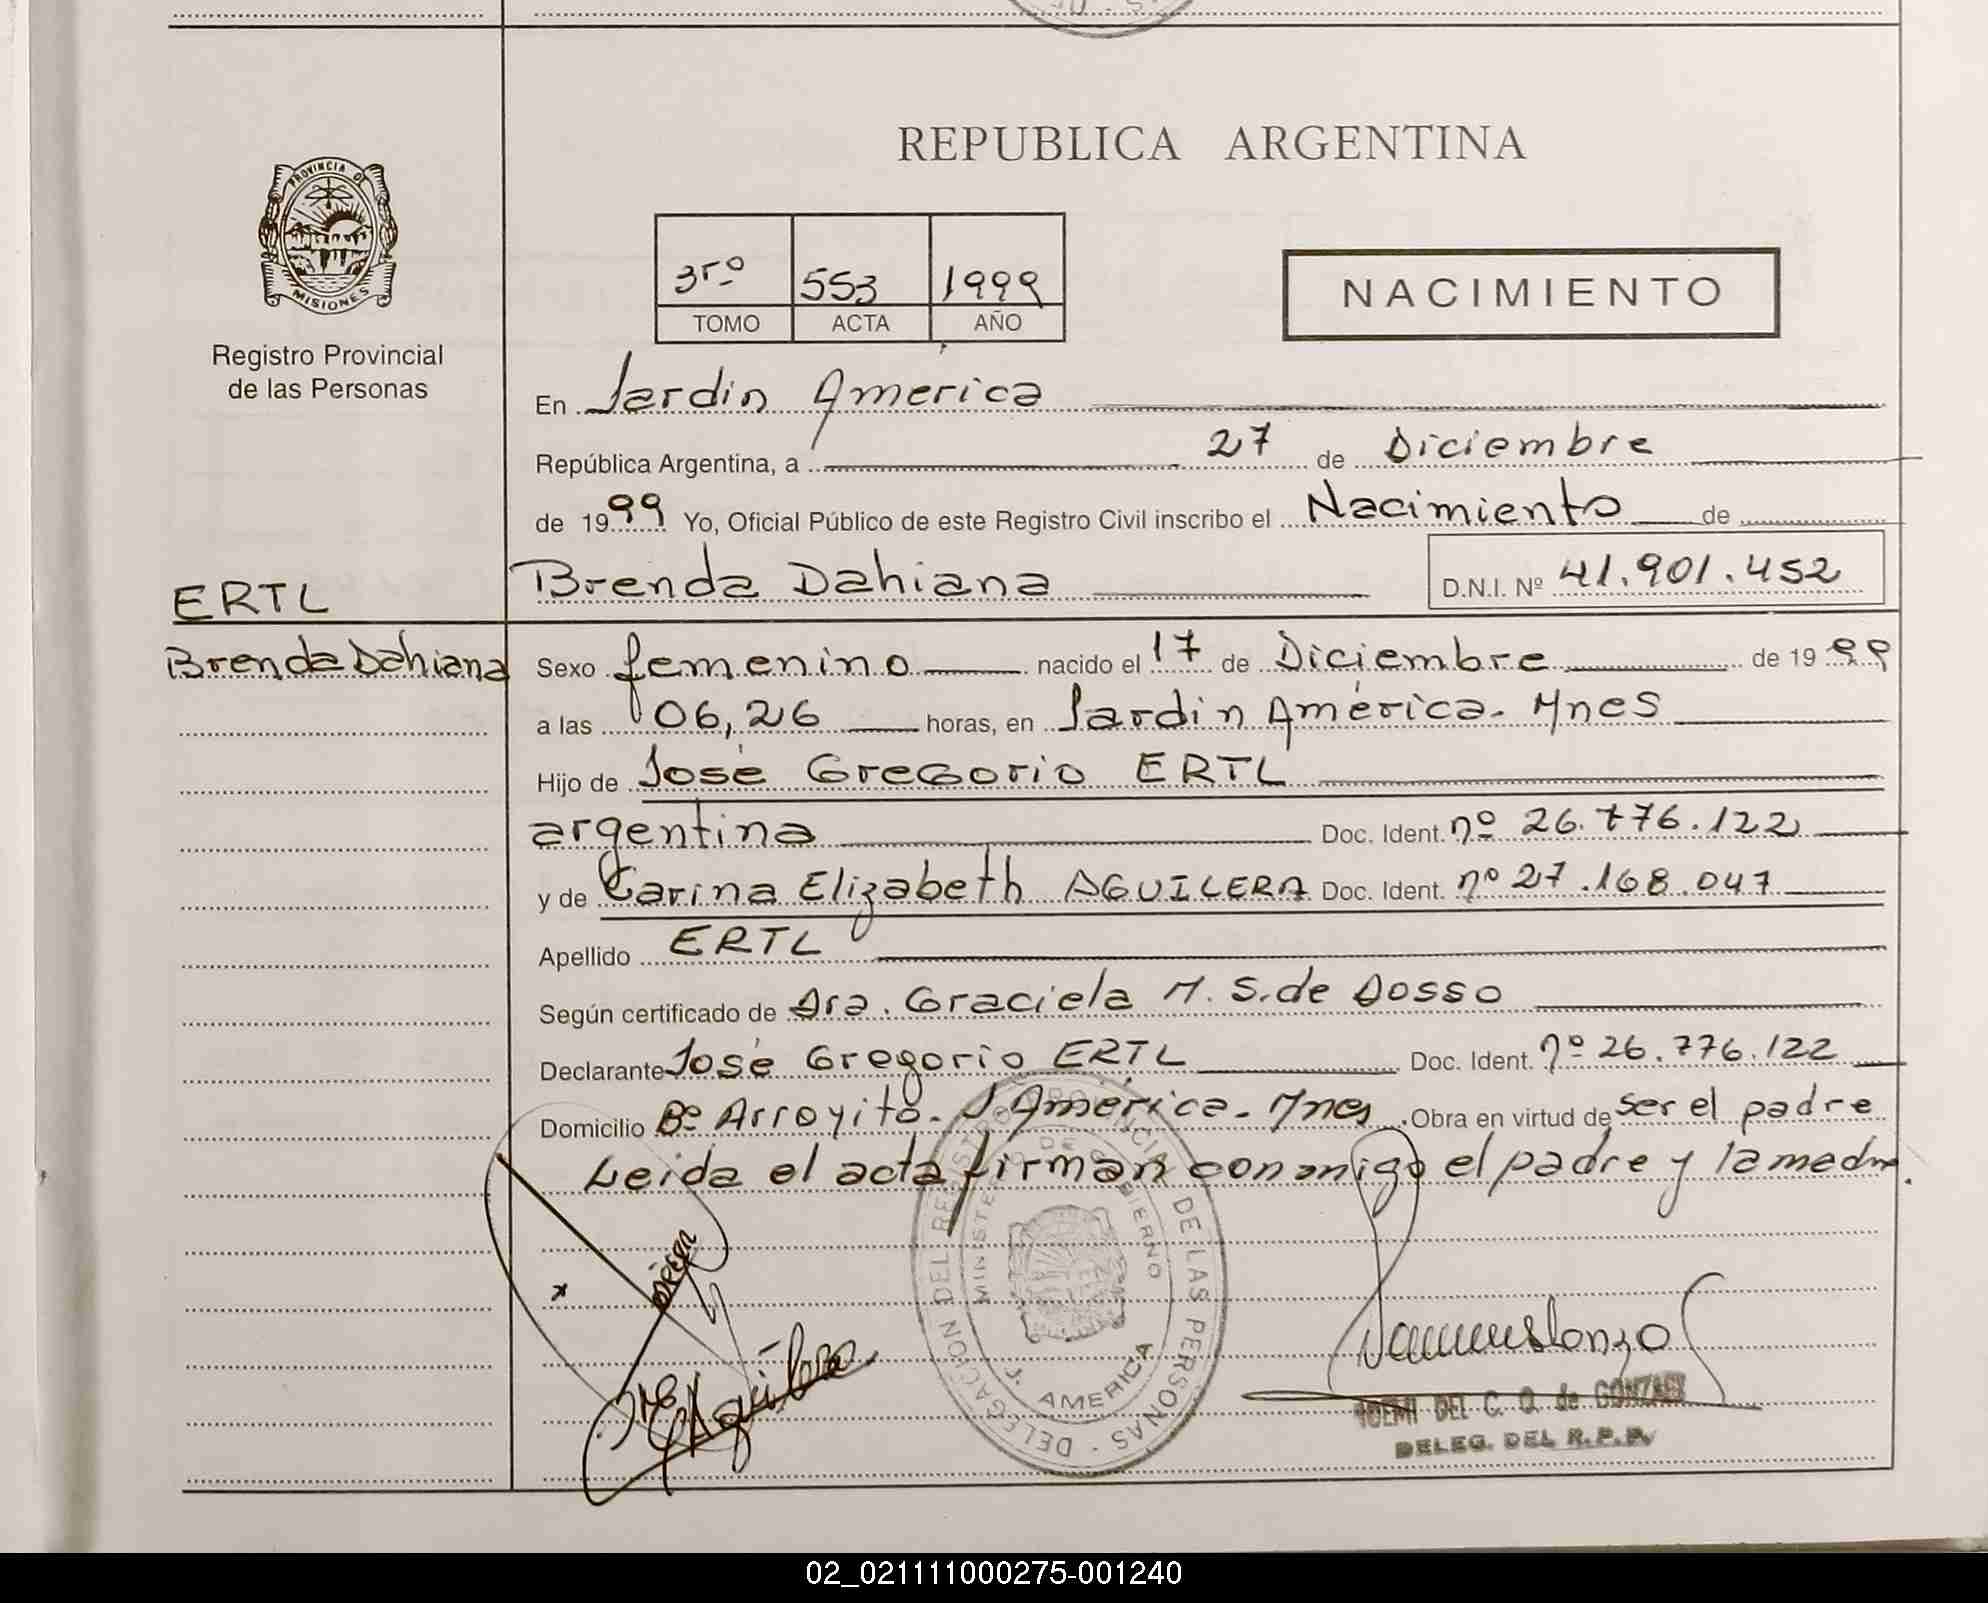 REPUBLICA ARGENTINA
PROVINCIA DE
MISIONES
Registro Provincial
de las Personas
3rº 553 1999
TOMO ACTA AÑO
NACIMIENTO
En Jardin América
República Argentina, a 27 de Diciembre
de 1999 Yo, Oficial Público de este Registro Civil inscribo el Nacimiento de
Brenda Dahiana D.N.I. Nº 41.901.452
ERTL
Brenda Dahiana
Sexo femenino nacido el 17 de Diciembre de 1999
a las 06,26 horas, en Jardin América. Mnes
Hijo de José Gregorio ERTL
argentina Doc. Ident. nº 26.776.122
y de Carina Elizabeth AGUILERA Doc. Ident. nº 27.168.047
Apellido ERTL
Según certificado de Dra. Graciela M. S. de Dosso
Declarante José Gregorio ERTL Doc. Ident. nº 26.776.122
Domicilio Bº Arroyito. J. América. Mnes. Obra en virtud de ser el padre
Leida el acta firman conmigo el padre y la madre.
DELEGACION DEL REGISTRO PROVINCIAL DE LAS PERSONAS
MINISTERIO DE GOBIERNO
J. AMERICA
NOEMI DEL C. O. de GONZALEZ
DELEG. DEL R.P.P.
02_021111000275-001240